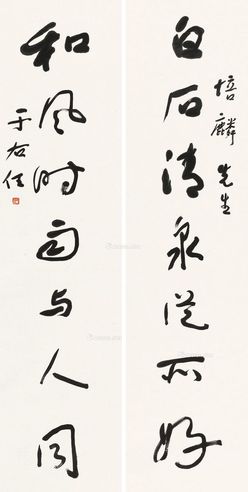 白石清泉從所好
培麟先生
和風時雨与人同
于右任